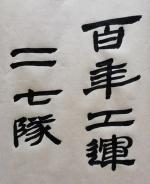 百年工運
二七隊